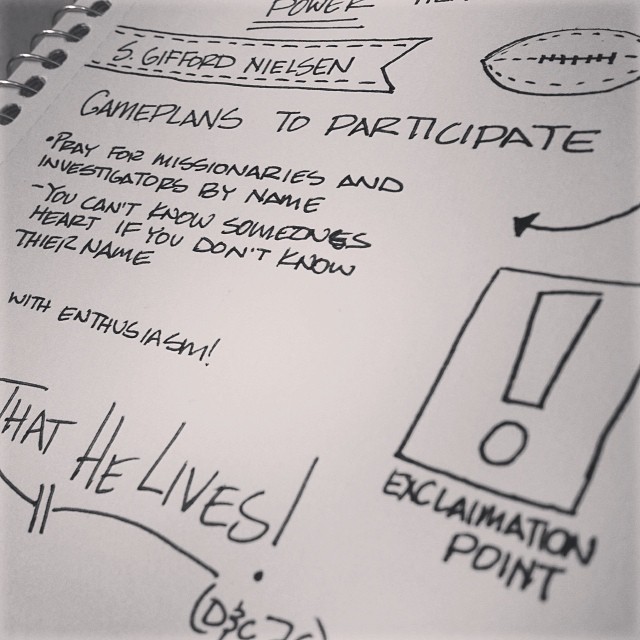 POWER
S. GIFFORD NIELSEN
GAMEPLANS TO PARTICIPATE
•PRAY FOR MISSIONARIES AND
INVESTIGATORS BY NAME
-YOU CAN'T KNOW SOMEONES
HEART IF YOU DON'T KNOW
THIER NAME
WITH ENTHUSIASM!
!
EXCLAIMATION
POINT
THAT HE LIVES!
(D&C